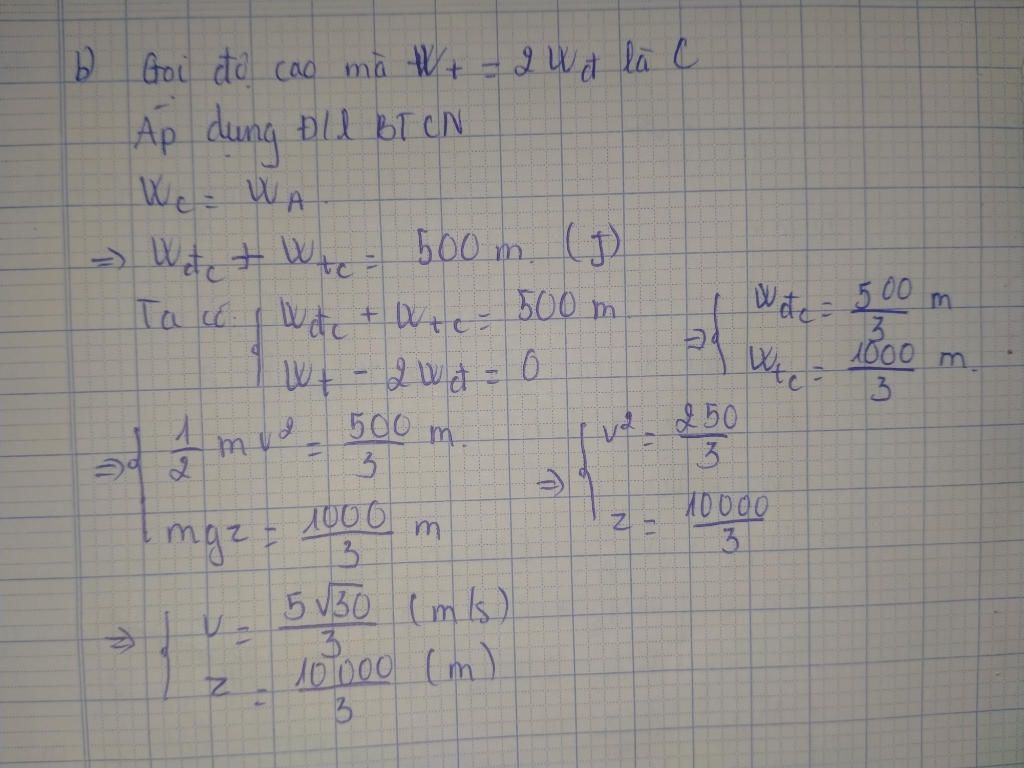 b) Gọi độ cao mà Wt = 2Wđ là C
Áp dụng ĐLl BTCN
WC = WA.
=> WđC + WtC = 500 m. (J)
Ta có { WđC + WtC = 500 m. => { WđC = 500/3 m
Wt - 2Wđ = 0 WtC = 1000/3 m.
=> { 1/2 mv² = 500/3 m. => { v² = 250/3
mgz = 1000/3 m z = 10000/3
=> { v = 5√30/3 (m/s)
z = 10000/3 (m)